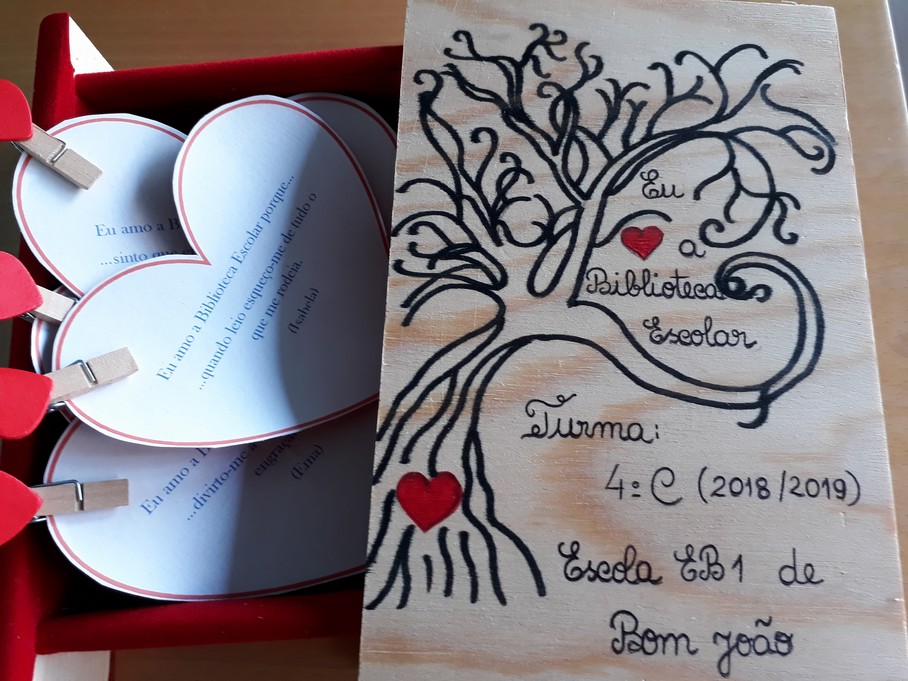 Eu amo a B
...sinto que
Eu amo a Biblioteca Escolar porque...
...quando leio esqueço-me de tudo o
que me rodeia.
(Isabela)
Eu amo a
...divirto-me
engraç
(Ema)
Eu
a
Biblioteca
Escolar
Turma:
4º C (2018/2019)
Escola EB1 de
Bom joão